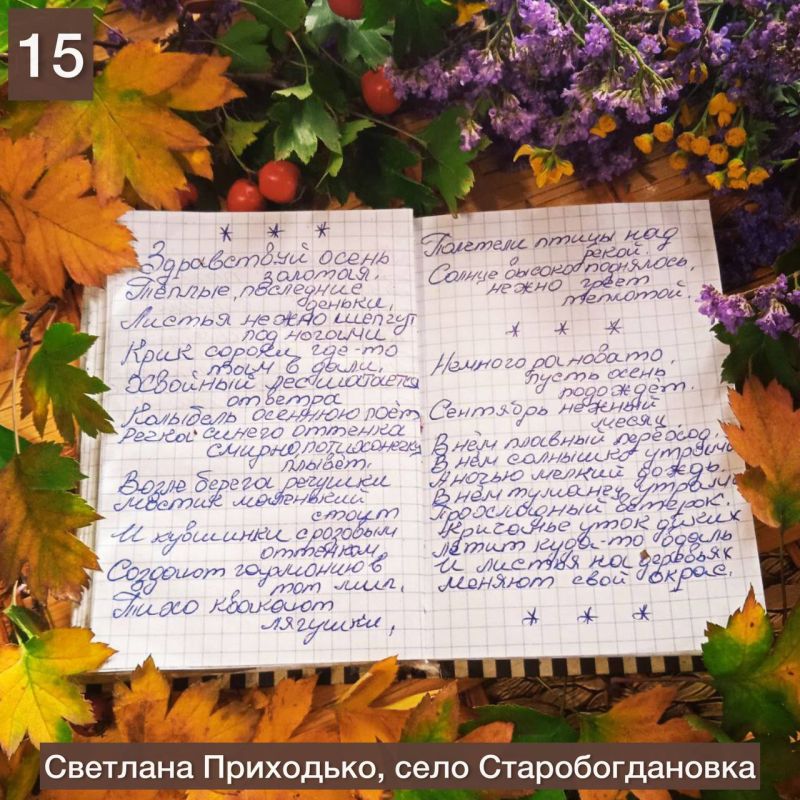 15
* * *
Здравствуй осень
золотая.
Тёплые, последние
деньки,
Листья нежно шепчут
под ногами
Крик сороки, где-то
там в дали.
Хвойный лес шатается
от ветра
Колыбель осеннюю поёт
Речка синего оттенка
смирно, потихонечку
плывёт.
Возле берега речушки
мостик маленький
стоит
И кувшинки с розовым
оттенком,
Создают гармонию в
тот миг.
Тихо квакают
лягушки,
Полетели птицы над
рекой.
Солнце высоко поднялось,
нежно греет
теплотой.
* * *
Немного рановато,
пусть осень
подождёт.
Сентябрь нежный
месяц,
В нём плавный переход.
В нём солнышко утрами
А ночью мелкий дождь.
В нём туманец утрами
Прохладный ветерок.
Кричанье уток диких
летит куда-то вдаль
И листья на деревьях
меняют свой окрас.
* * *
Светлана Приходько, село Старобогдановка